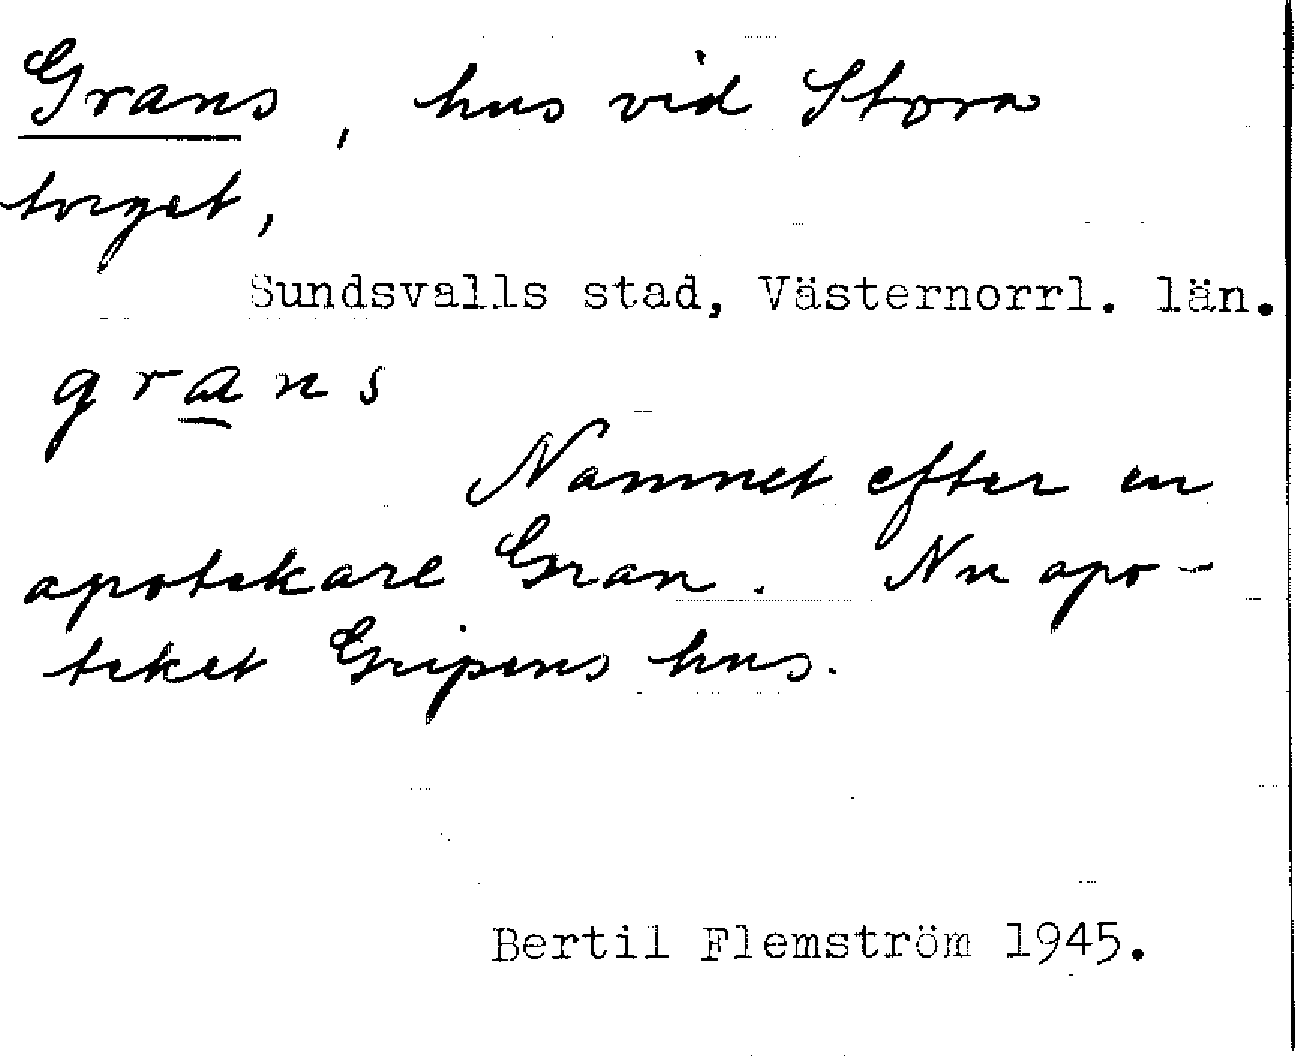 Grans, hus vid Stora
torget,
Sundsvalls stad, Västernorrl. län.
grans
Namnet efter en
apotekare Gran. Nu apo-
teket Gripens hus.
Bertil Flemström 1945.